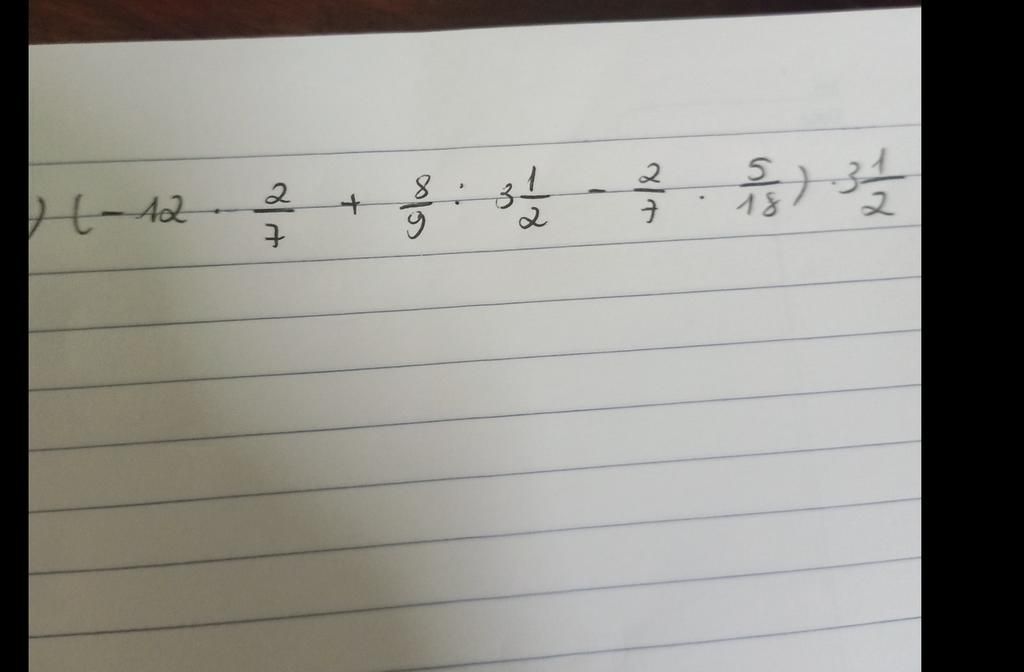 ) (-12 · 2/7 + 8/9 : 3 1/2 - 2/7 · 5/18) · 3 1/2